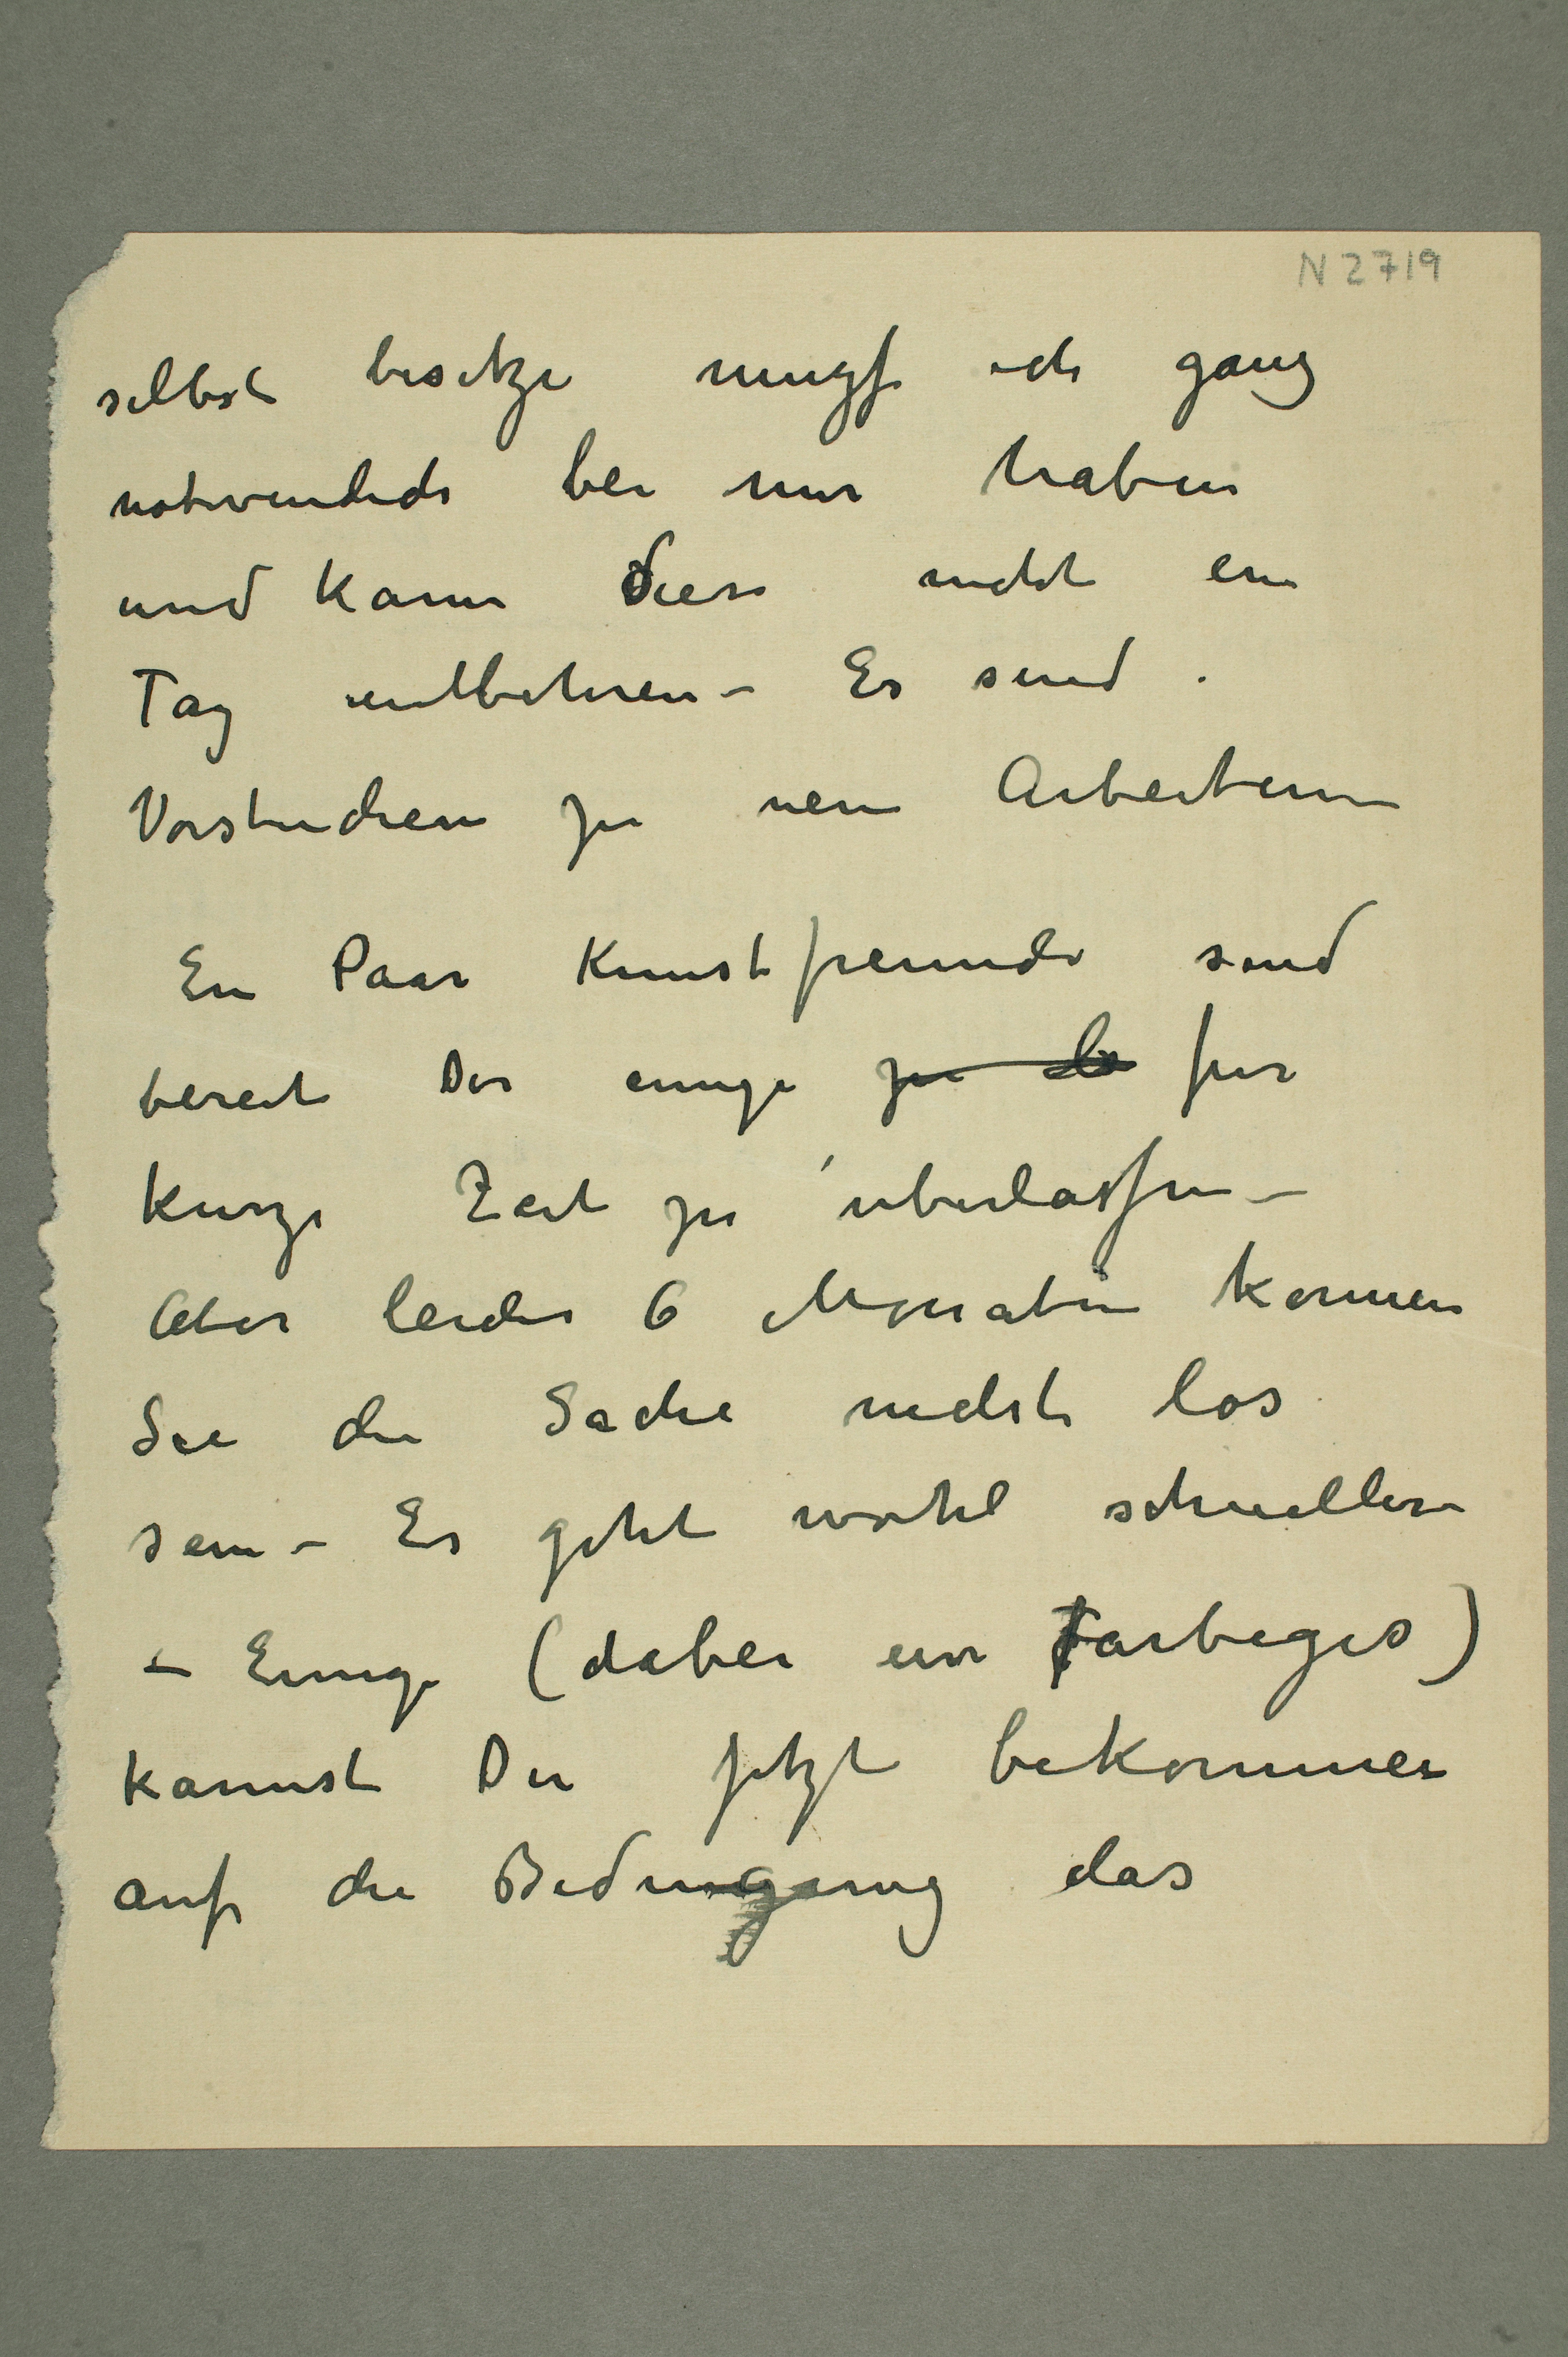 N 2719
selbst besitze muszs ich ganz
notwendich bei mir haben
und kann diese nicht ein
Tag entbehren – Es sind
Vorstudien zu neuen Arbeiten
Ein Paar Kunstfreunde sind
bereit Dir einige zu fur
Kurze Zeit zu uberlassen –
Aber leider 6 Monaten konnen
Sie die Sache nicht los
sein – Es geht wohl schneller
– Einige (dabei ein farbiges)
kannst Du jetzt bekommen
auf die Bedingung das